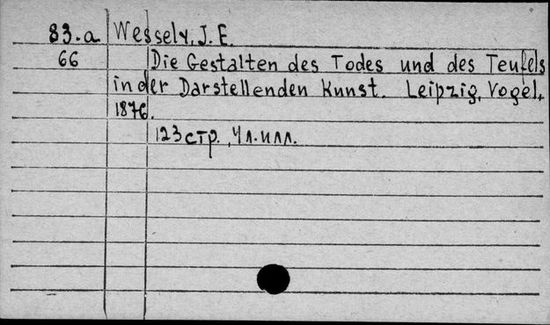 83.a Wessely, J. E.
66 Die Gestalten des Todes und des Teufels
in der Darstellenden Kunst. Leipzig, Vogel,
1876.
123 стр., 4 л. илл.